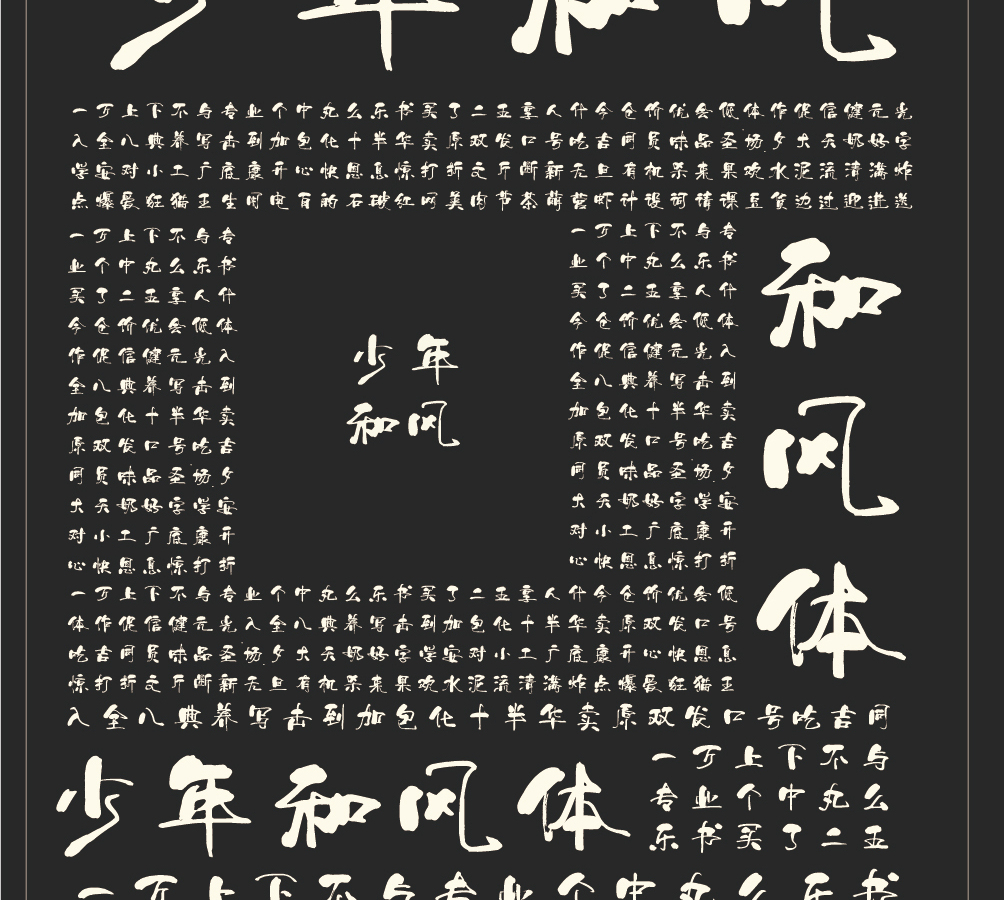 少年和风
一万上下不与专业个中丸么乐书买了二五享人什今仓价优会便体作促信健元光
入全八典养写击到加包化十半华卖原双发口号吃吉同员味品圣场夕大天奶好字
学安对小工广底康开心快恩息惊打折文斤断新无旦有机杀来果欢水泥流清满炸
点爆爱狂猫王生用电百的石破红网美肉节茶萌蓝虾计设词请课豆食边过迎进送
一万上下不与专
业个中丸么乐书
买了二五享人什
今仓价优会便体
作促信健元光入
全八典养写击到
加包化十半华卖
原双发口号吃吉
同员味品圣场夕
大天奶好字学安
对小工广底康开
心快恩息惊打折
少年
和风
一万上下不与专
业个中丸么乐书
买了二五享人什
今仓价优会便体
作促信健元光入
全八典养写击到
加包化十半华卖
原双发口号吃吉
同员味品圣场夕
大天奶好字学安
对小工广底康开
心快恩息惊打折
和
风
体
一万上下不与专业个中丸么乐书买了二五享人什今仓价优会便
体作促信健元光入全八典养写击到加包化十半华卖原双发口号
吃吉同员味品圣场夕大天奶好字学安对小工广底康开心快恩息
惊打折文斤断新无旦有机杀来果欢水泥流清满炸点爆爱狂猫王
入全八典养写击到加包化十半华卖原双发口号吃吉同
少年和风体
一万上下不与
专业个中丸么
乐书买了二五
一万上下不与专业个中丸么乐书